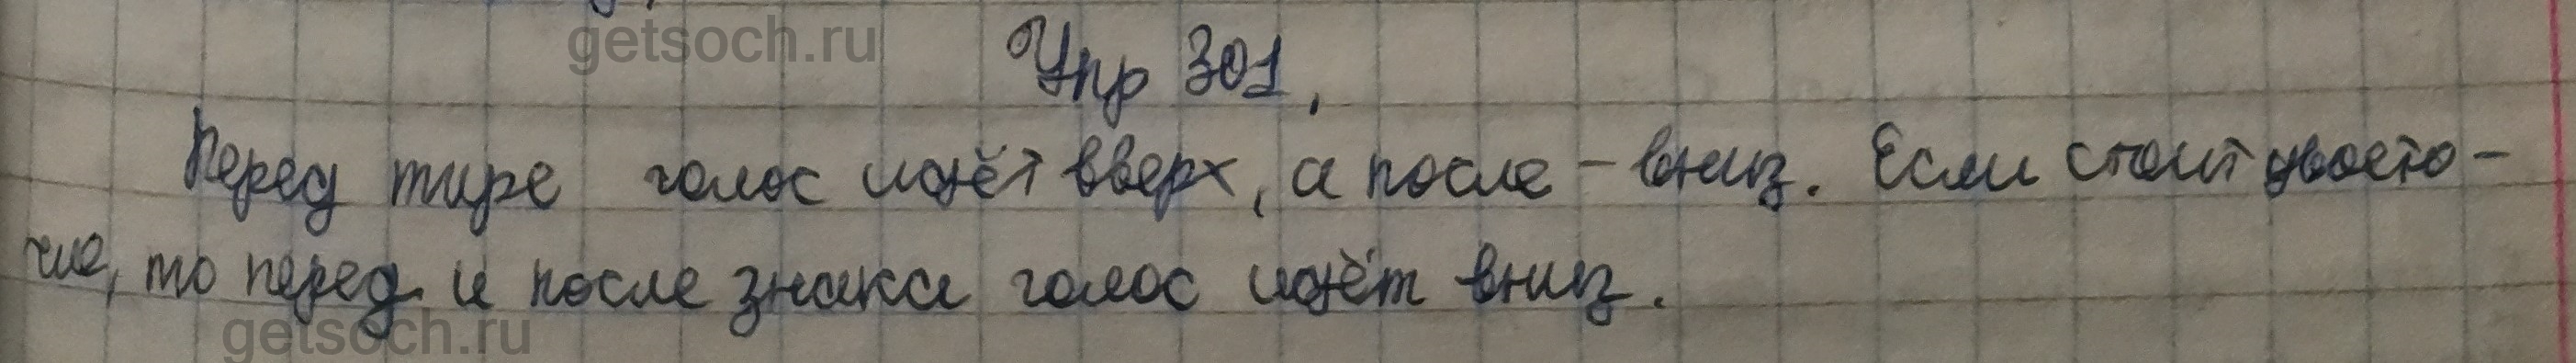 getsoch.ru
Упр 301.
Перед тире голос идёт вверх, а после – вниз. Если стоит двоето-
чие, то перед и после знака голос идёт вниз.
getsoch.ru